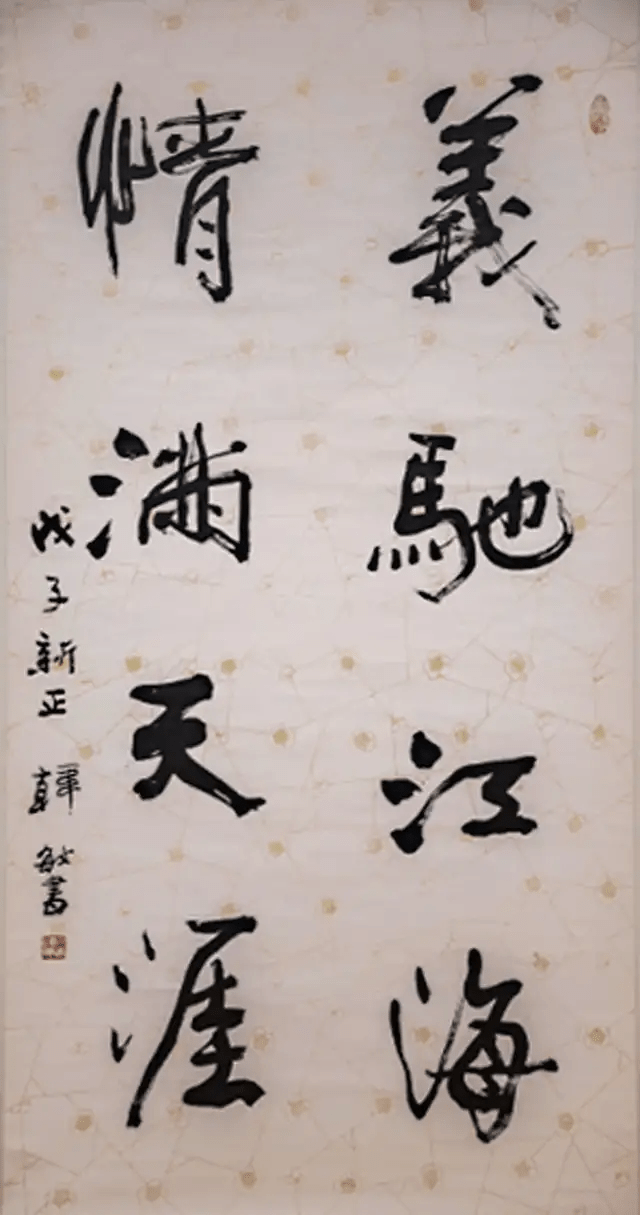 義馳江海
情滿天涯
戊子新正 韓敏書